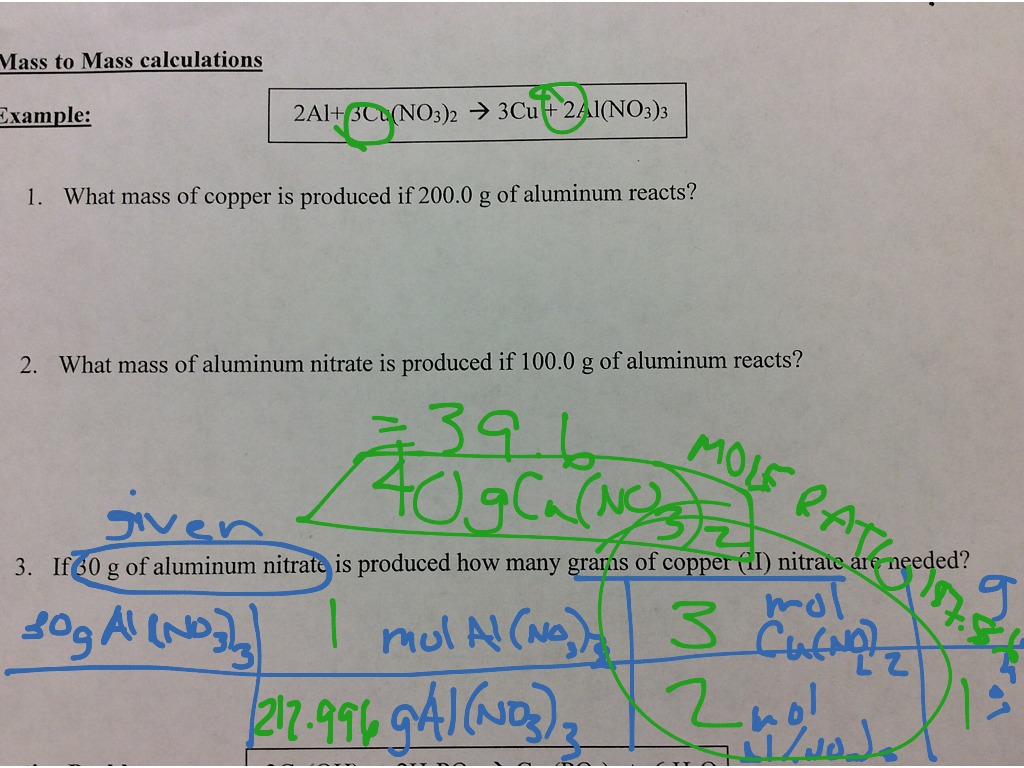 Mass to Mass calculations
Example:
2Al+ 3Cu(NO3)2 → 3Cu + 2Al(NO3)3
1. What mass of copper is produced if 200.0 g of aluminum reacts?
2. What mass of aluminum nitrate is produced if 100.0 g of aluminum reacts?
= 39.6
40 g Cu(NO3)2
MOLE RATIO
given
3. If 30 g of aluminum nitrate is produced how many grams of copper (II) nitrate are needed?
30g Al(NO3)3 1 mol Al(NO3)3 3 mol Cu(NO3)2 g
212.996 gAl(NO3)3 2 mol Al(NO3)3 1